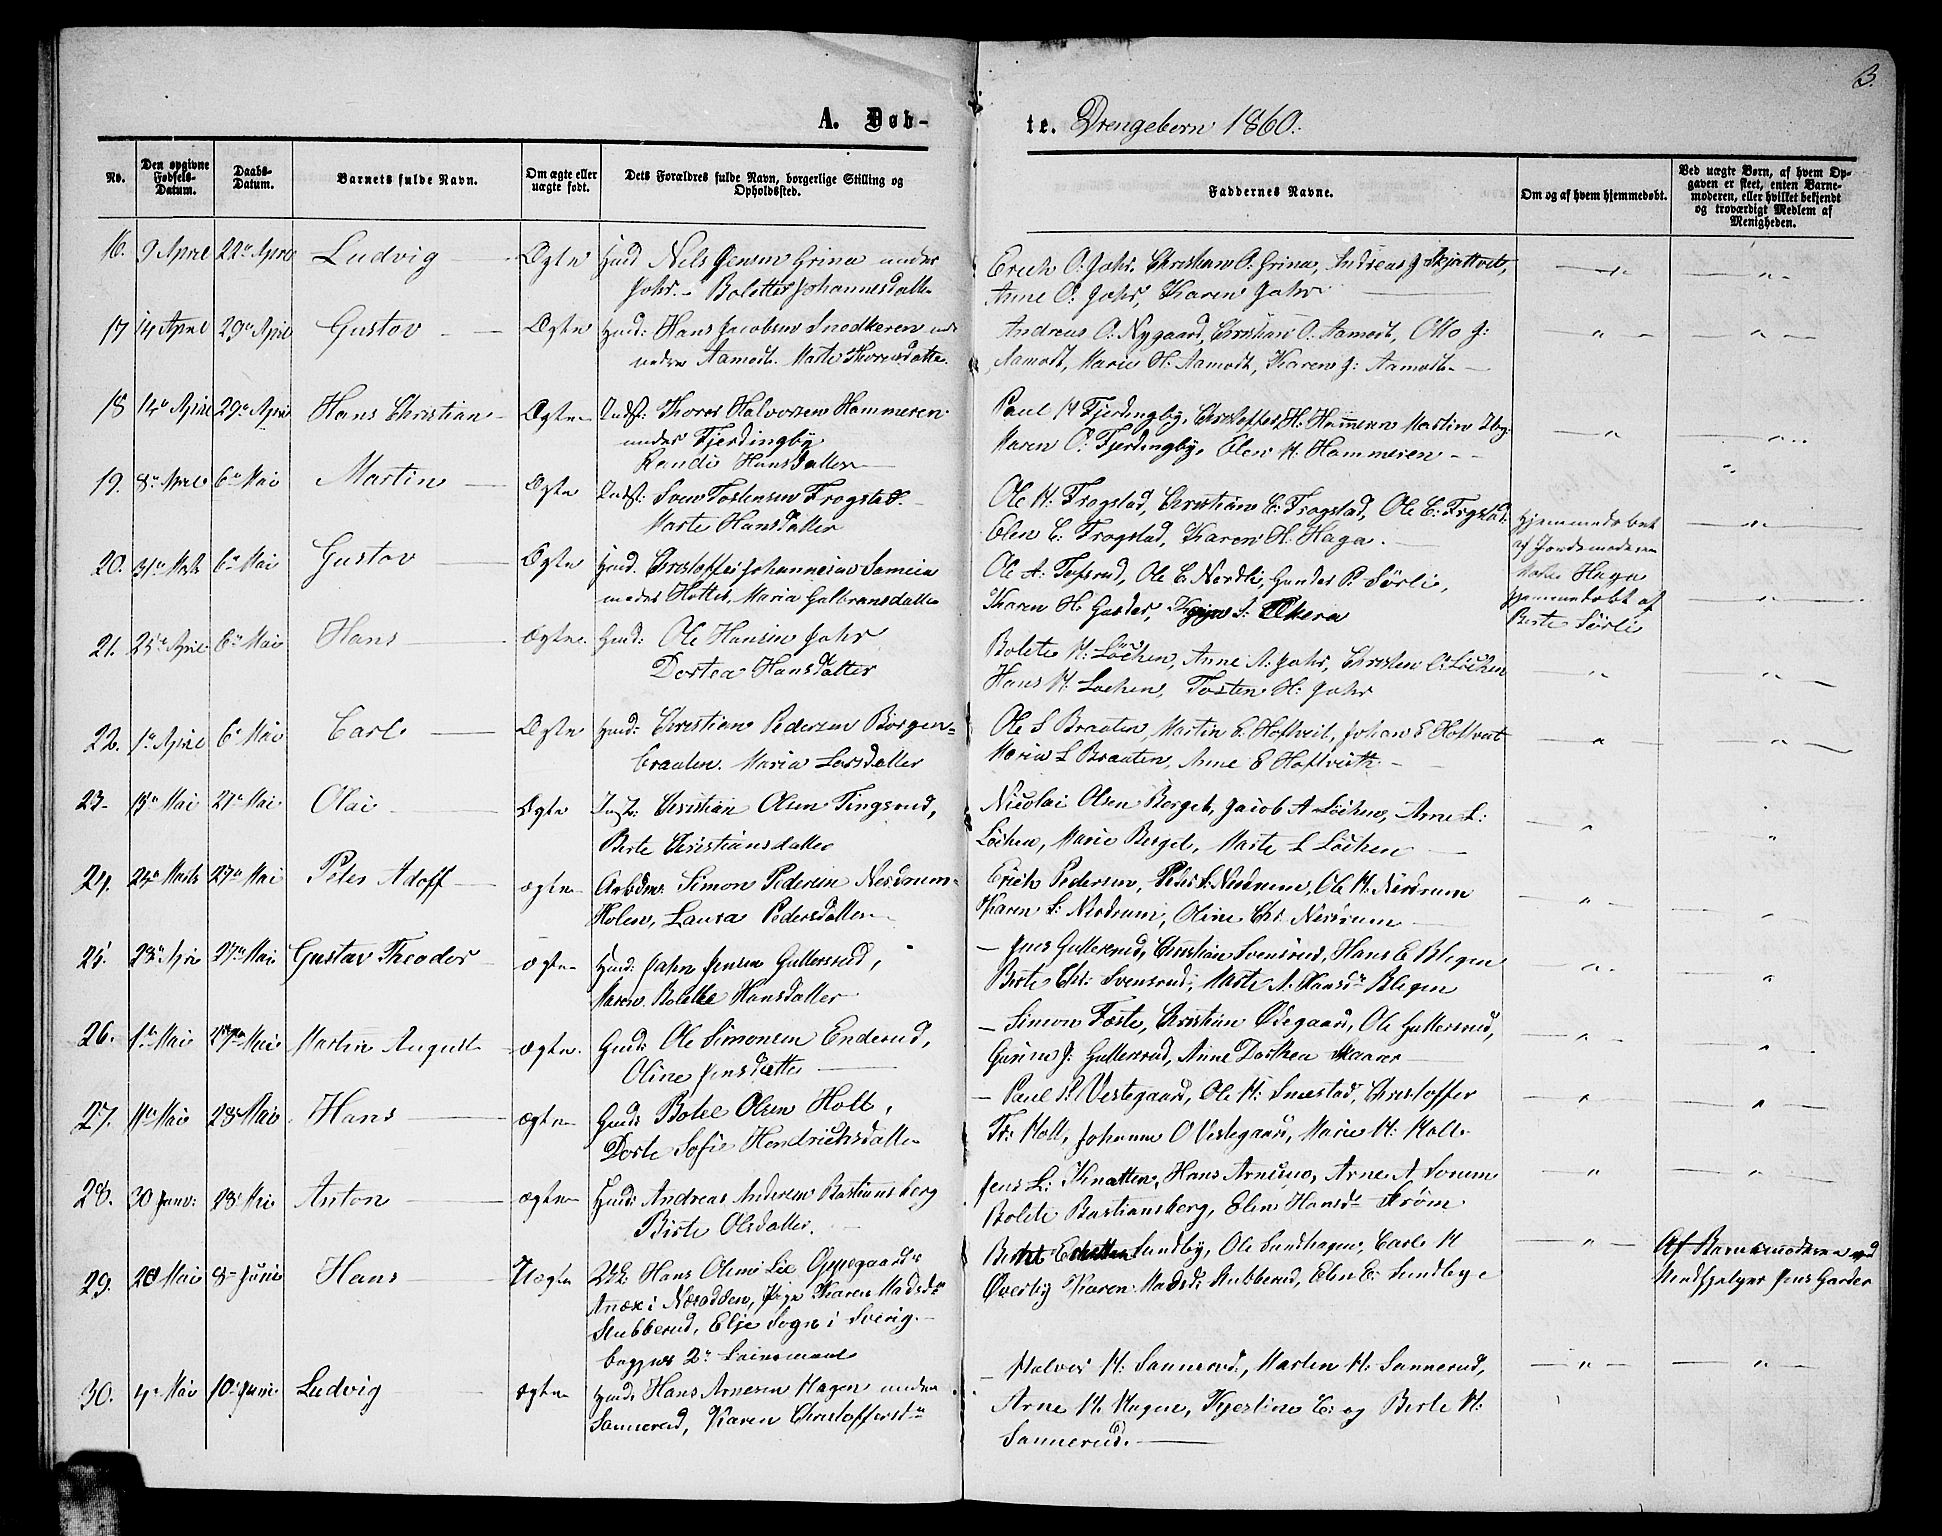 3.
A. Døb-
te. Drengebørn 1860.
No.
Den opgivne Fødsels-Datum.
Daabs-Datum.
Barnets fulde Navn.
Om ægte eller uægte født.
Dets Forældres fulde Navn, borgerlige Stilling og Opholdssted.
Faddernes Navne.
Om og af hvem hjemmedøbt.
Ved uægte Børn, af hvem Opgaven er skeet, enten Barnemoderen, eller hvilket bekjendt og troværdigt Medlem af Menigheden.
16. 9 April 22de April Ludvig Ægte Husmd Nels Jensen Grina under
Johr. Bolette Johannesdatter
Erich O: Johr. Christian O: Grina, Andreas J.
Anne O: Johr, Karen Johr
17 14 April 29de April Gustav Ægte Husmd: Hans Jacobsen Snedkeren
nedre Aamodt. Marte Thorersdatter
Andreas O: Nygaard, Christian O. Aamodt, Otto J:
Aamodt, Marie H. Aamodt, Karen J: Aamodt
18 14de April 29de April Hans Christian Ægte Indst: Thorer Halvorsen Hammeren
under Fjerdingby
Randi Hansdatter
Paul H Fjerdingby, Christoffer H: Hammeren Martin
Maren O: Fjerdingby, Elen H. Hammeren
19. 8de April 6te Mai Martin Ægte Indst: Sven Tostensen Frogstad
Marte Hansdatter
Ole H. Frogstad, Christian E: Frogstad, Ole E: Frogstad
Elen E: Frogstad, Karen H. Haga.
Hjemmedøbt
af Jordemoderen
Haga
20. 31te Marts 6te Mai Gustav Ægte Husmd. Christoffer Johannesen
Maria Gulbransdatter
Ole A: Tofsrud, Ole E. Nordli, Gunder P. Sørli,
Karen H. S:
hjemmedøbt af
Berte Sørli
21. 25de April 6te Mai Hans Ægte Gmd: Ole Hansen Johr
Dortea Hansdatter
Bolete H: Løchen, Anne A: Johr, Christen O: Løchen
Hans H: Løchen, Tosten H: Johr
22. 1te April 6te Mai Carl Ægte Husmd: Christian Pedersen Borgen-
braaten. Maria Larsdatter
Ole L Braaten, Martin E. Hoftvedt, Johan E Hoftvedt
Maria L Braaten, Anne E Hoftvedt
23. 15de Mai 27de Mai Olai Ægte Inst: Christian Olsen Tingsrud,
Berte Christiansdatter
Nicolai Olsen Berget, Jacob A Løchen, Arne L:
Løchen, Marie Berget, Marte L Løchen
24. 24de Marts 27de Mai Peter Adolf ægte Arbdm: Simon Pedersen Nerdrum-
Holen, Laura Pedersdatter
Erich Pedersen, Peder S: Nerdrum, Ole H. Nerdrum
Karen S: Nerdrum, Oline Chr. Nerdrum
25. 28de Apri 27de Mai Gustav Theodor ægte Husmd: John Jensen Gullersrud,
Maren Bolette Hansdatter
Jens Gullersrud, Christian Svensrud, Hans E Blegen
Berte Chr: Svensrud, Marte A. Hansdr Blegen
26. 1te Mai 27de Mai Martin August ægte Gmd: Ole Simonsen Enderud,
Oline Jensdatter
Simon Foste, Christian Ødegaard, Ole Gullersrud,
J: Gullersrud, Anne Dorthea Skaarer
27. 11te Mai 28de Mai Hans ægte Gmd: Botel Olsen Holt,
Dorte Sofie Hendrichsdatter
Paul P. Vestegaard, Ole H: Smestad, Christoffer
Fr: Holt, Johanne O Vestegaard, Marie H: Holt
28. 30 Janv: 28 Mai Anton ægte Husmd: Andreas Andersen Bastiansberg
Berte Olsdatter.
Jens L: Knatten, Hans Arnesen, Arne A Sorum
Bolette Bastiansberg, Elen Hansdr Strøm
29. 20 Mai 8de Juni Hans Uægte Hans Olsen Lie Oppegaards
Annex i Næsodden, Pige Karen Madsdr
Stubberud, Elje Sogn i Sverig.
begges 2det Leiermaal
Sundby, Ole Sundhagen, Carl H
Øverby Karen Madsd: Stubberud, Elen E: Sundby
Af Barnemoderen ved
Medhjælper Jens Garder
30. 4de Mai 10de Juni Ludvig ægte Husmd: Hans Arnesen Hagen under
Sannerud, Karen Christoffersdr
Halvor H: Sannerud, Marten H: Sannerud,
Arne H. Hagen, Kjerstine E: og Berte H:
Sannerud.